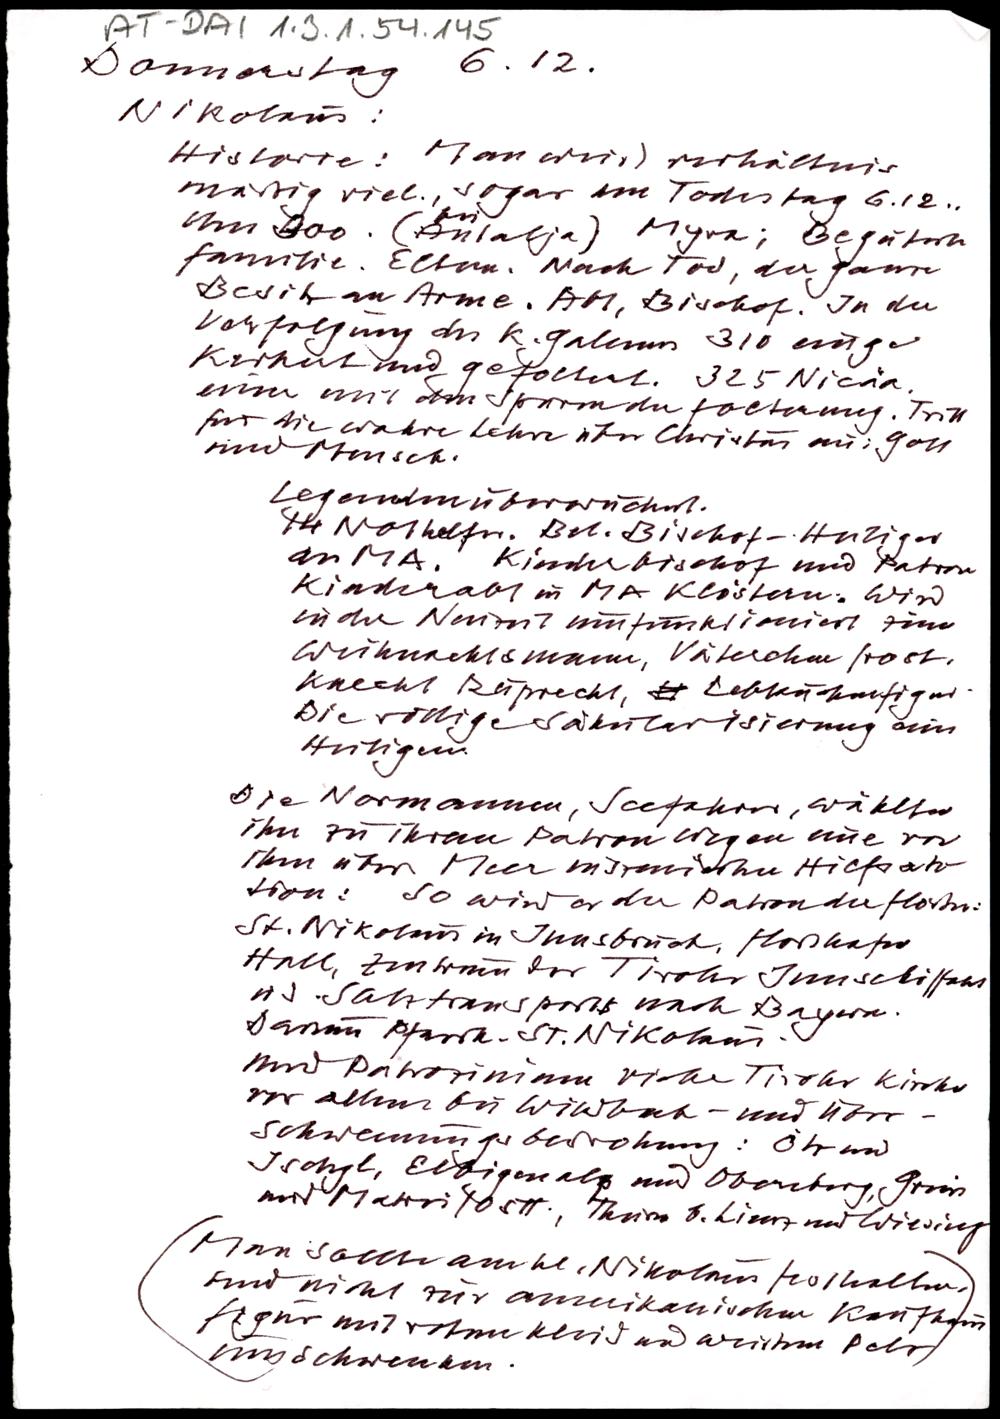 AT-DAI 1.3.1.54.145
Donnerstag 6.12.
Nikolaus:
Historie: Man weiss verhältnis
mässig viel, sogar den Todestag 6.12..
Um 300. (Antalja) Myra; Begüterte
familie. Eltern. Nach Tod, der ganze
Besitz an Arme. Abt, Bischof. In der
Verfolgung des K. Galerius 310
Kerkert und gefoltert. 325 Nicäa.
einer mit den Spuren der folterung. Tritt
für die wahre Lehre über Christus ein: Gott
und Mensch.
Legendenüberwuchert.
14 Nothelfer. Bel. Bischof-Heiliger
des MA. Kinderbischof und Patron
Kinderabt in MA Klöstern. Wird
in der Neuzeit umfunktioniert zum
Weihnachtsmann, Väterchen frost.
Knecht Ruprecht, Lebkuchenfigur.
Die völlige Säkularisierung eines
Heiligen.
Die Normannen, Seefahrer, wählten
ihn zu ihrem Patron wegen einer von
ihm über Meer inszenierten Hilfsak
tion: So wird er der Patron der flösser:
St. Nikolaus in Innsbruck, flosshafen
Hall, Zentrum der Tiroler Innschiffahrt
und Salztransports nach Bayern.
Darum Pfarrk. St. Nikolaus.
und Patrozinium vieler Tiroler Kirchen
vor allem bei Wildbach- und Über-
schwemmungsbedrohung: Ötz und
Ischgl, Elbigenalp und Obernberg, Grins
und Matrei/Ostt., Thurn b. Lienz und Wiesing
(Man sollte am hl. Nikolaus festhalten.
und nicht zur amerikanischen Kaufhaus
figur mit rotem kleid und weissem Pelz
umschwenken.)